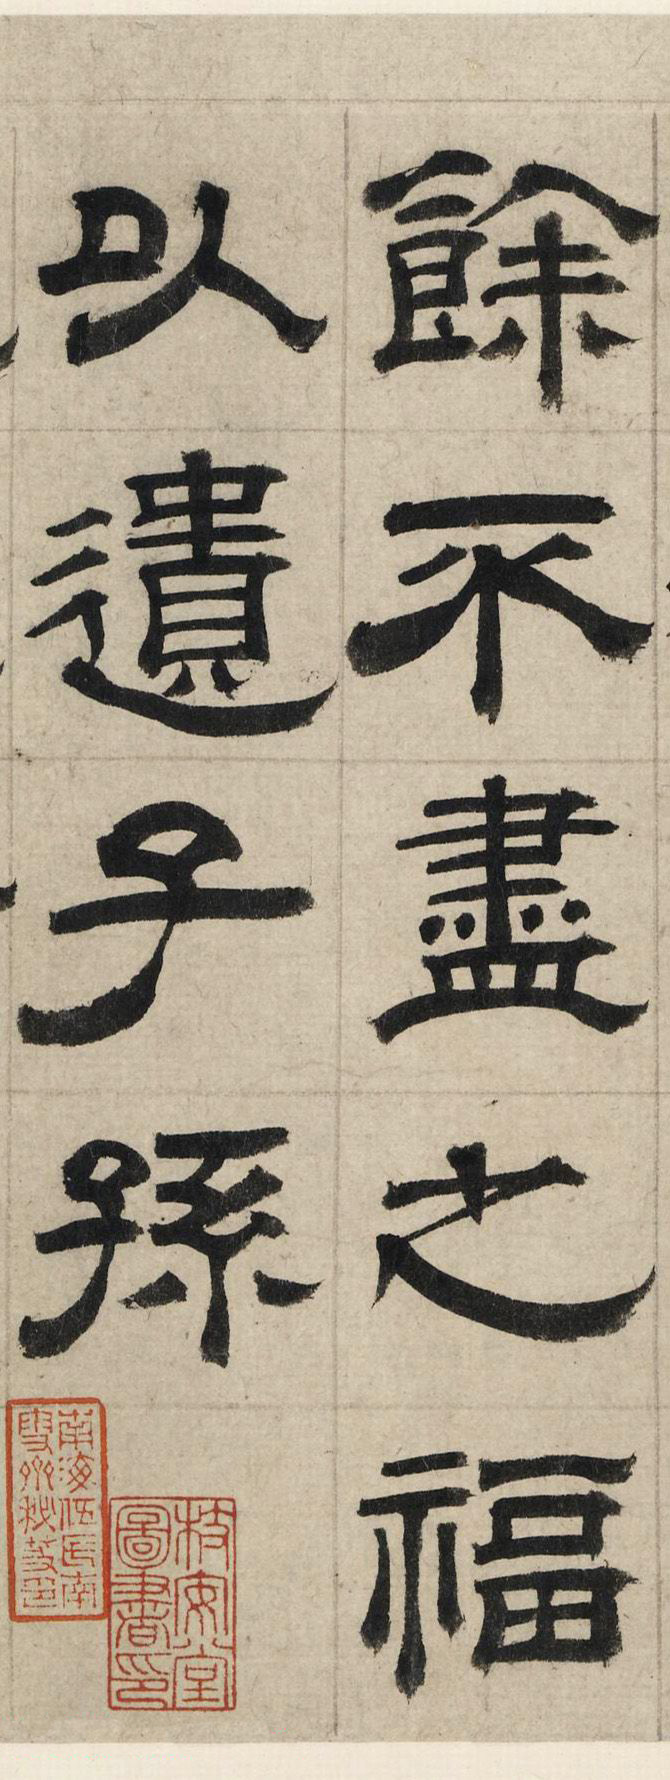 餘不盡之福
以遺子孫
南海伍氏南
雪齋秘笈印
枝安堂
圖書印